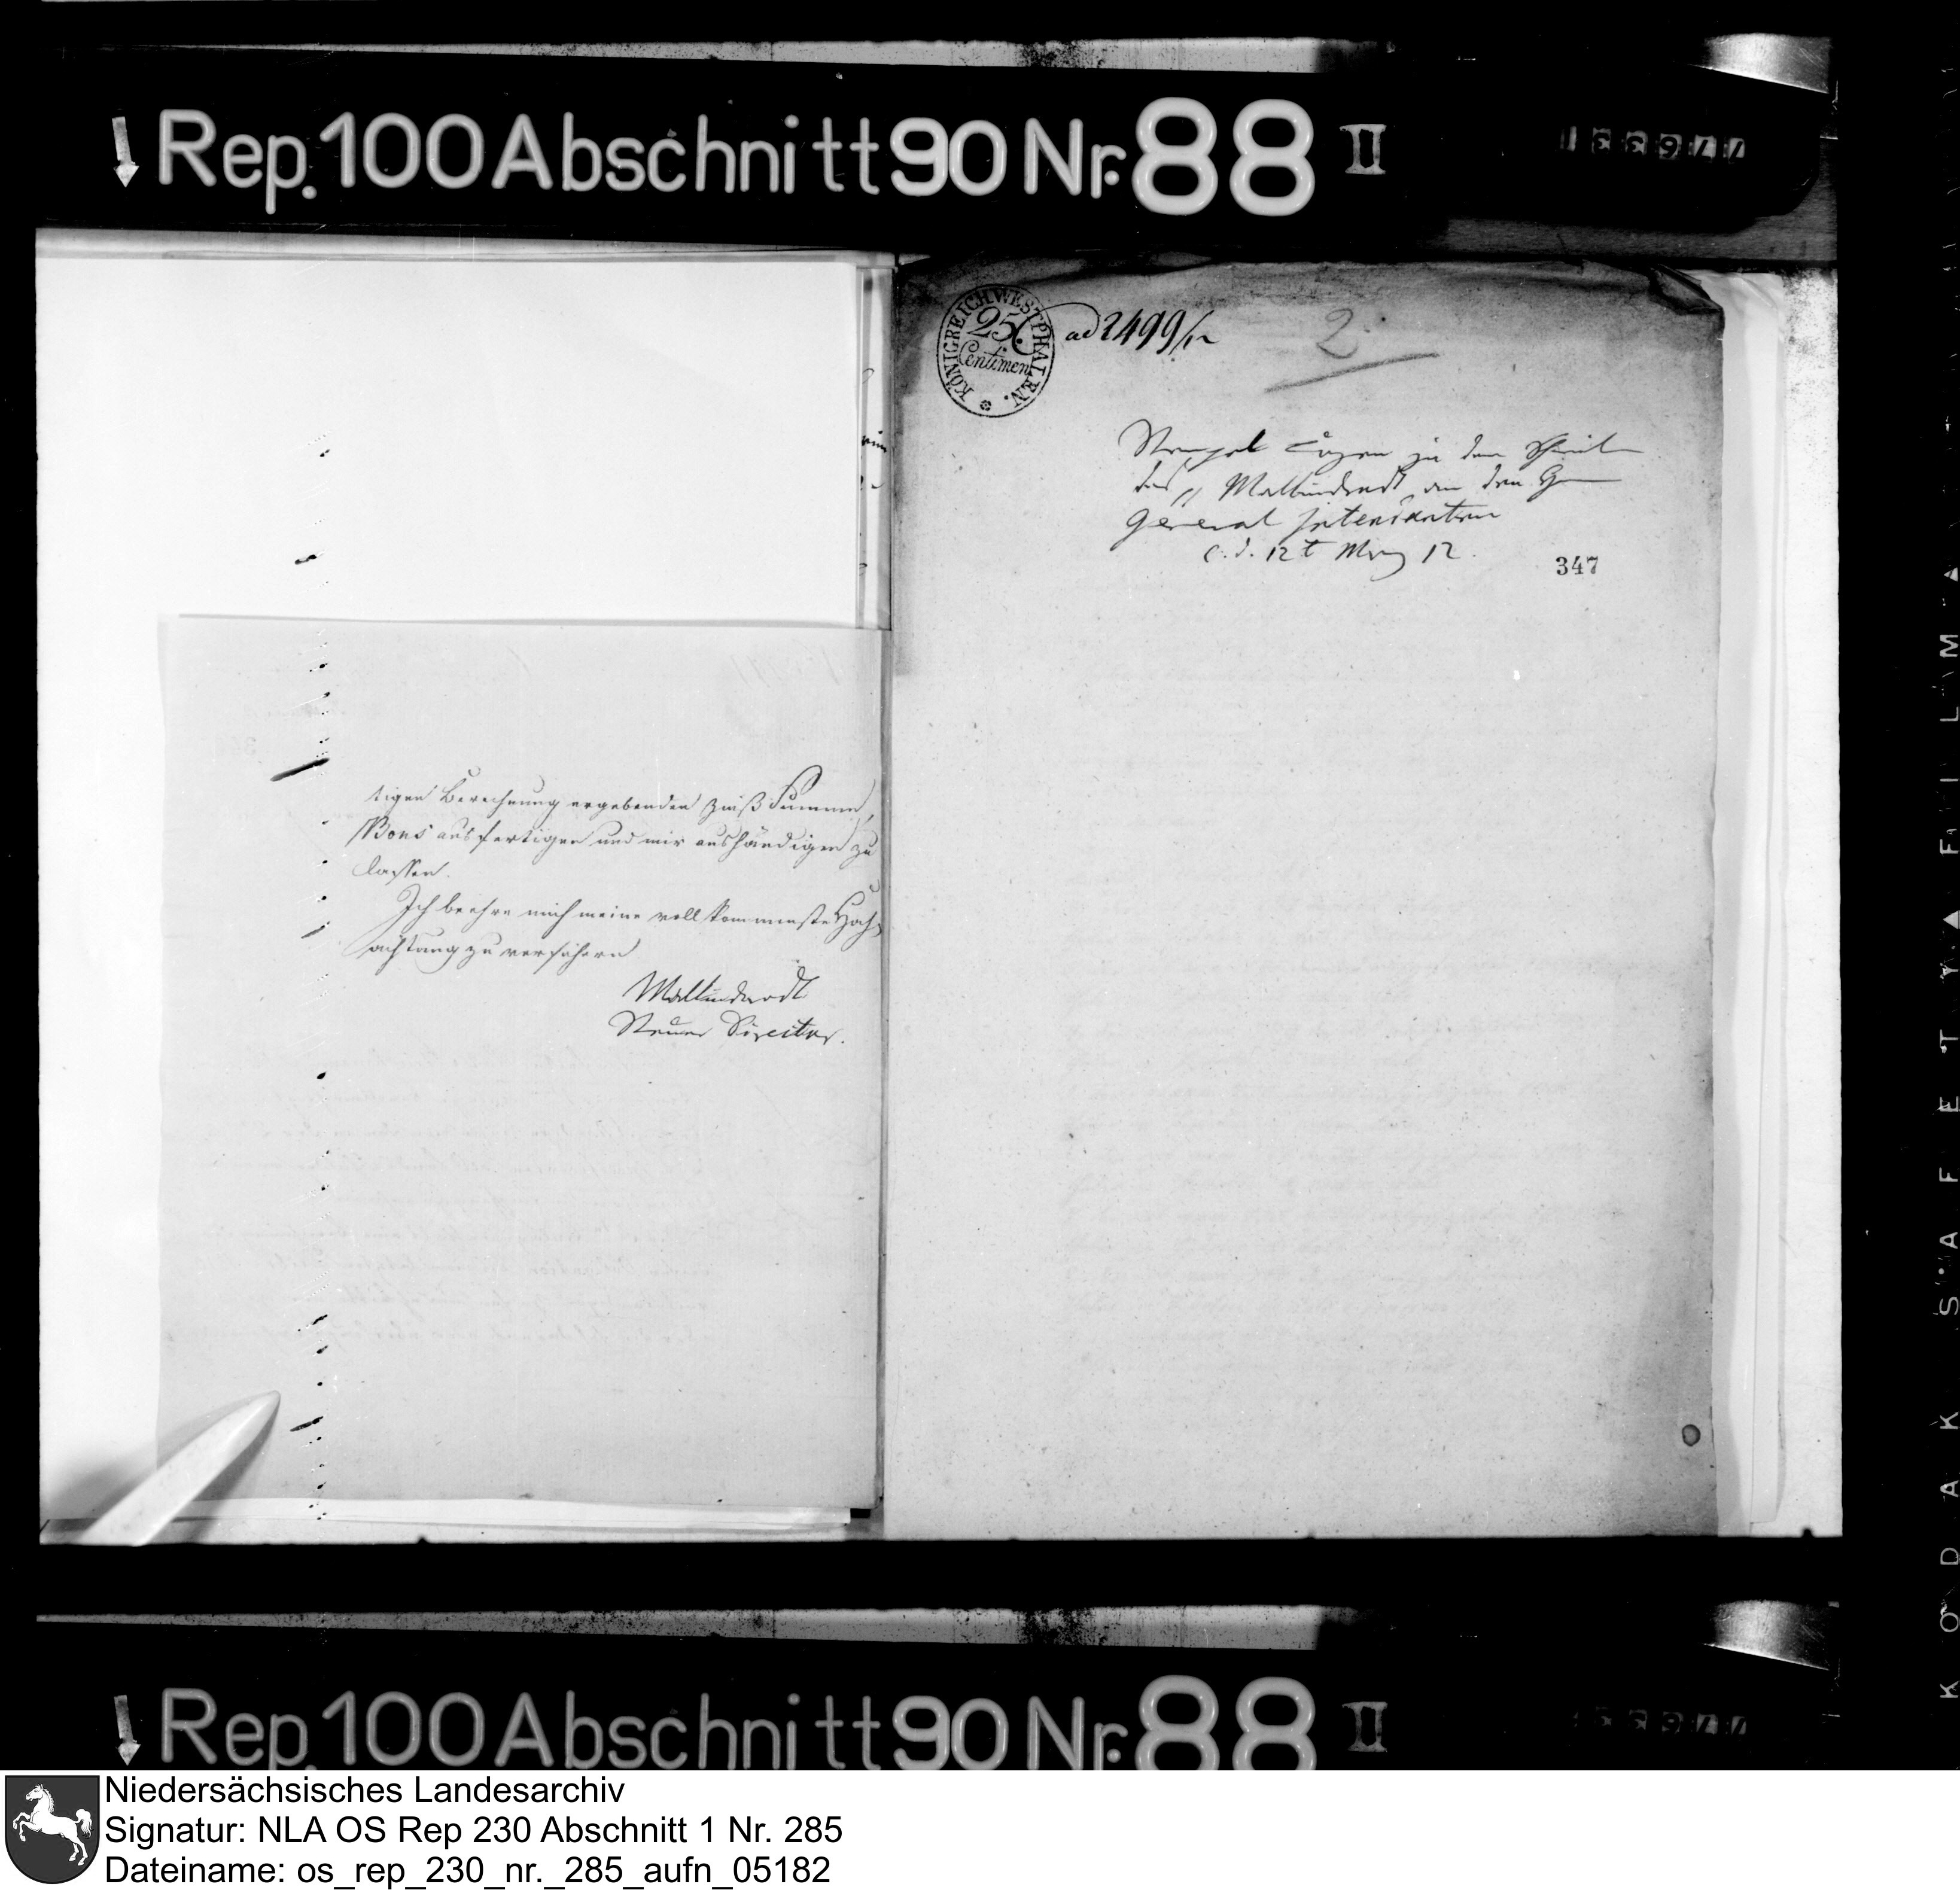 Rep. 100 Abschnitt 90 Nr. 88 II
tigen Berechnung ergebenden Zinß Summen,
Bons ausfertigen und mir aushändigen zu
lassen.
Ich beehre mich meine vollkommenste Hoch-
achtung zu versichern
Mallinckrodt
Steuer Director.
KÖNIGREICH WESTPHALEN.
25 C.
Centimen
ad 2499/12
2.
Stempel Bogen zu dem
des Mallinckrodt an den
General Intendanten
c. d. 12t May 12.
347
KODAK SAFETY FILM
Rep. 100 Abschnitt 90 Nr. 88 II
Niedersächsisches Landesarchiv
Signatur: NLA OS Rep 230 Abschnitt 1 Nr. 285
Dateiname: os_rep_230_nr._285_aufn_05182